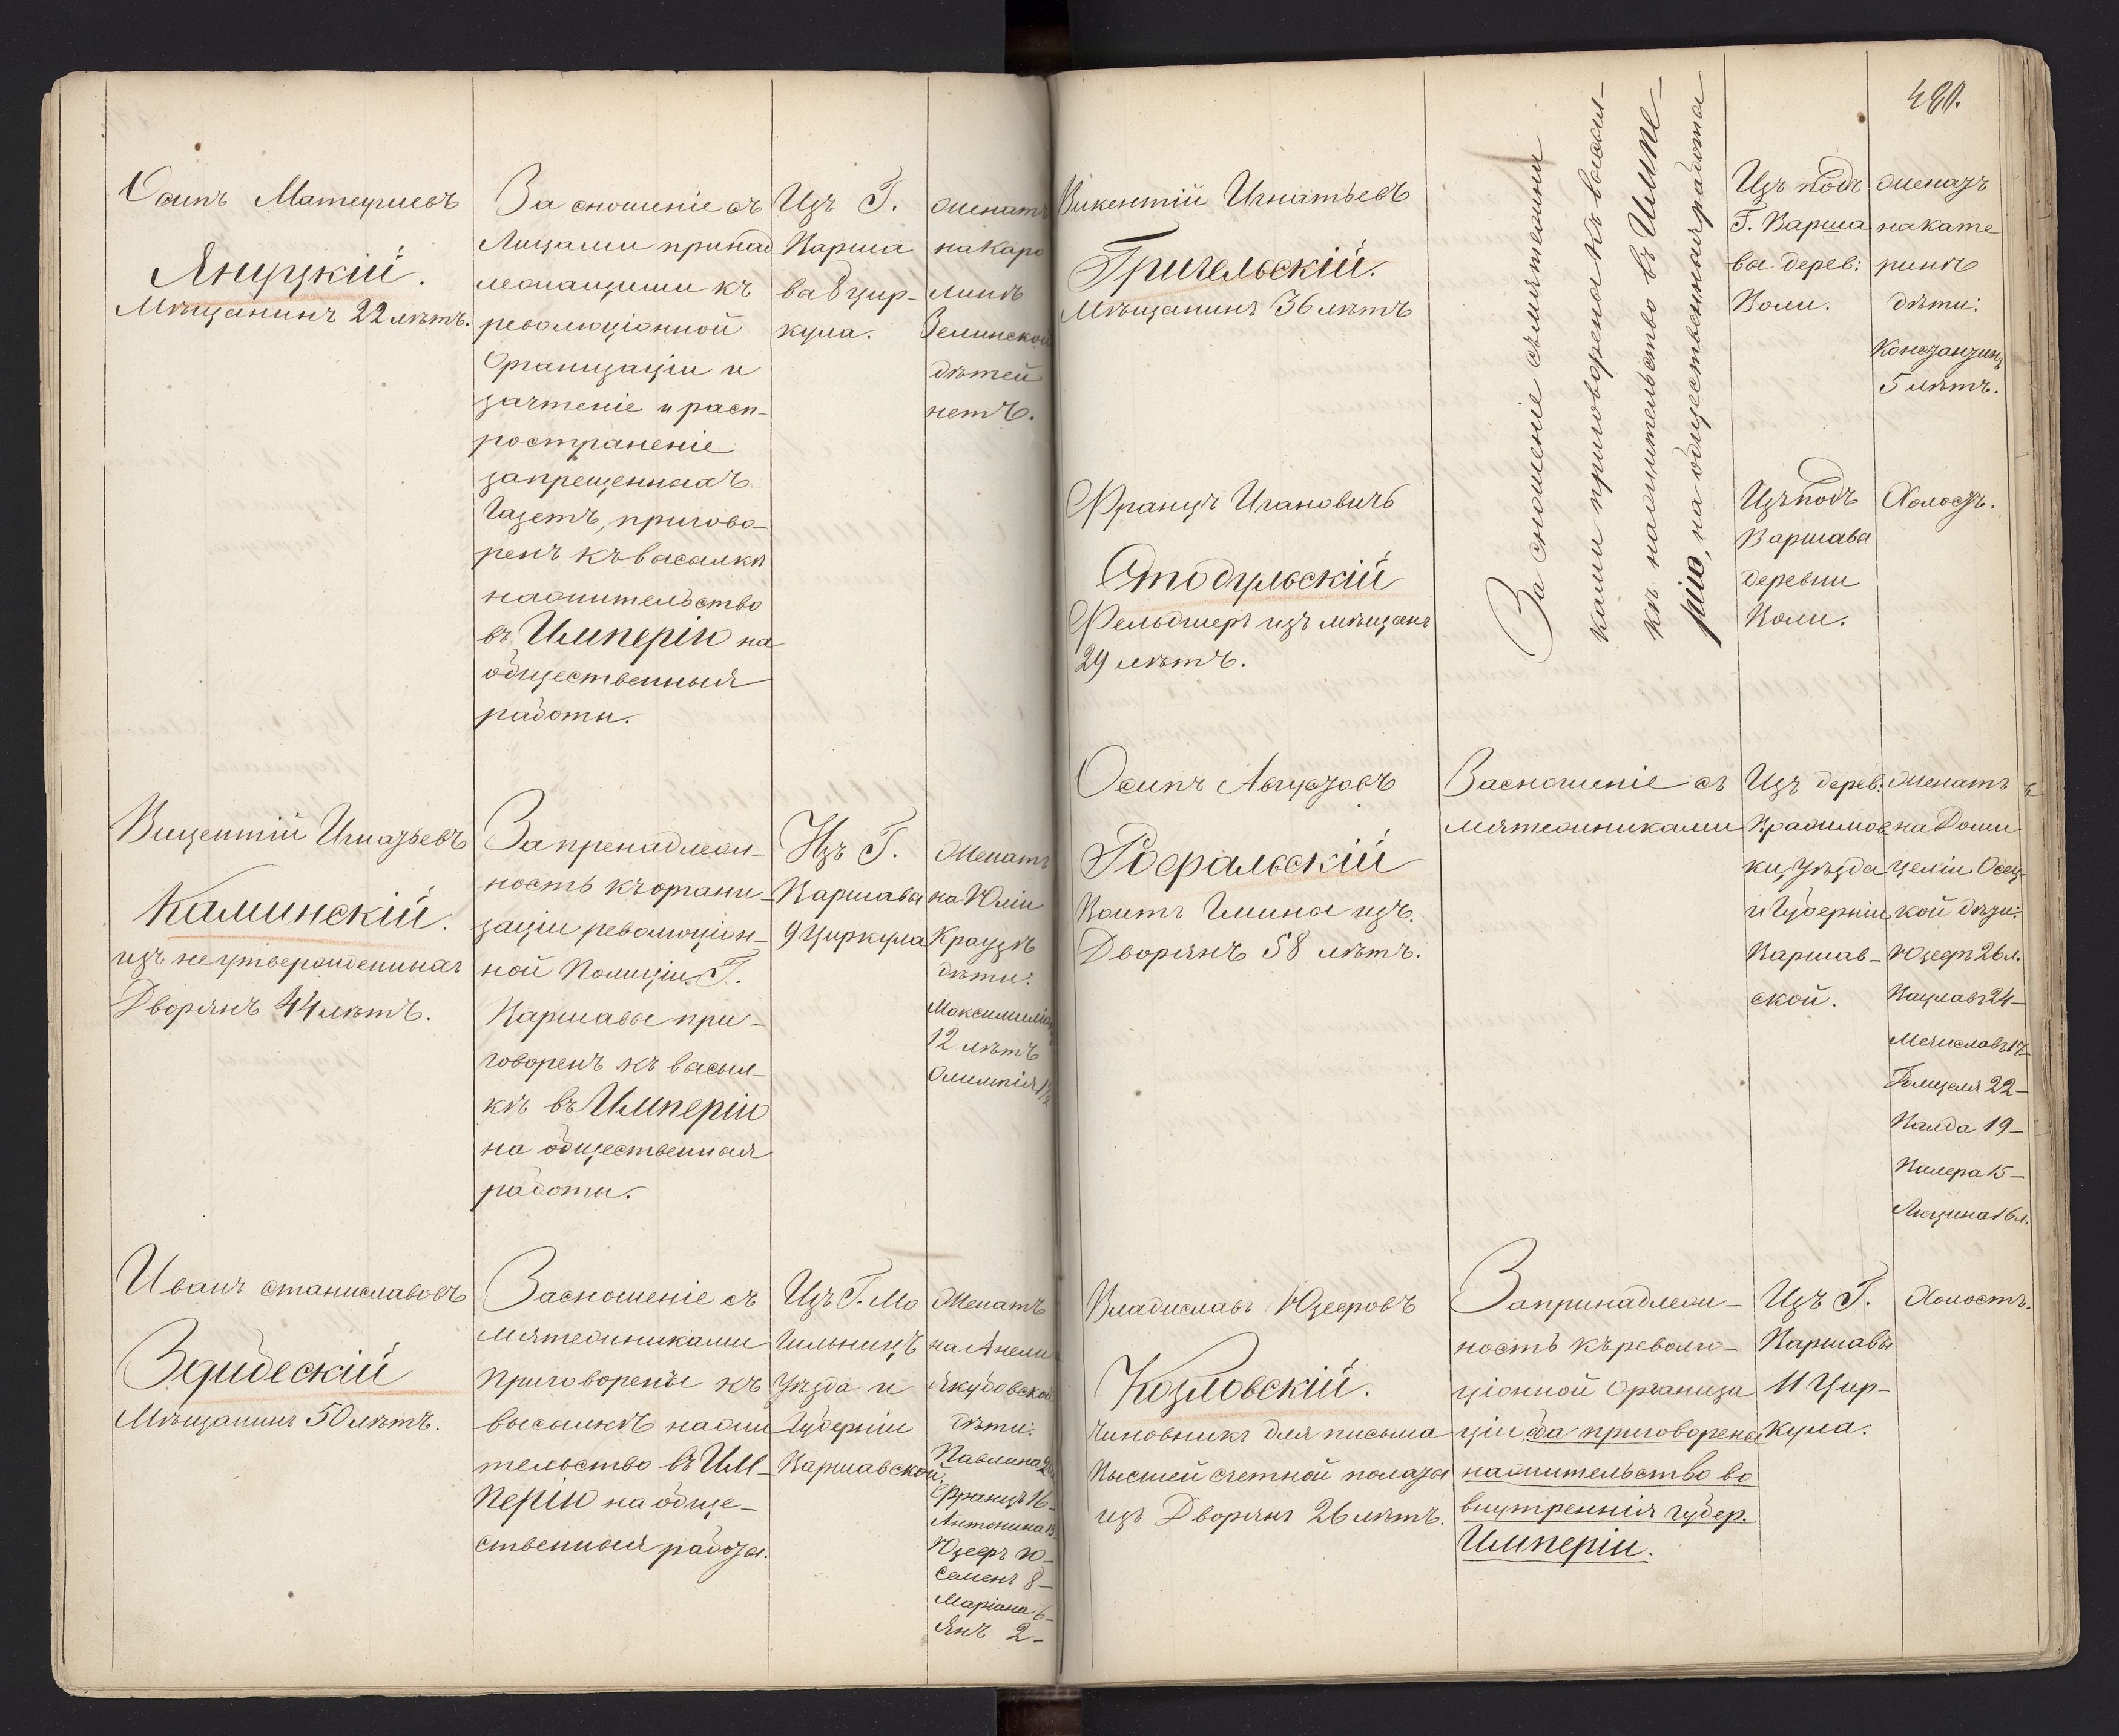 Осипъ Матеушевъ
Януцкій.
Мѣщанинъ 22 лѣтъ.
За сношеніе съ
Лицами принад
лежащими къ
революціонной
Организаціи и
за чтеніе и расп-
ространеніе
запрещенныхъ
Газетъ, пригово-
ренъ къ высылкѣ
на жительство
въ Имперію на
общественныя
работы.
Изъ Г.
Варша
вы 8 цир-
кула.
женатъ
на Каро
линѣ
Зелинской
дѣтей
нетъ.
Вицентій Игнатьевъ
Калинскій.
изъ неутвержденныхъ
Дворянъ 44 лѣтъ.
За пренадлеж-
ность къ органи-
заціи революціон-
ной Полиціи Г.
Варшавы при-
говоренъ къ высыл-
кѣ въ Имперію
на общественныя
работы.
Изъ Г.
Варшавы
9 Циркула
Женатъ
на Юліи
Краузѣ
дѣти:
Максимиліан
12 лѣтъ
Олимпія 1½
Иванъ Станиславовъ
Мѣщанинъ 50 лѣтъ.
За сношеніе съ
мятежниками
Приговорены къ
высылкѣ на жи
тельство въ Им-
перію на обще-
ственныя работы.
Изъ Г. Мо
гильницъ
Уѣзда и
Губерніи
Варшавской
Женатъ
на Анели
Якубовской
дѣти:
Павлина
Францъ 16-
Антонина 13
Юзефъ 10-
Семенъ 8-
Маріана 6-
Янъ 2-
480.
Викентій Игнатьевъ
Григельскій.
Мѣщанинъ 36 лѣтъ
За сношеніе съ мятежни
ками приговорены къ высыл-
кѣ на жительство въ Импе-
рію, на общественныя работы
Изъ подъ
Г. Варша
вы дерев:
Воли.
женатъ
на Кате
ринѣ
дѣти:
Константинъ
5 лѣтъ.
Францъ Ивановичъ
Стодульскій
Фельдшеръ изъ мѣщанъ
29 лѣтъ.
Изъ подъ
Варшавы
деревни
Воли.
Холостъ.
Осипъ Августовъ
Рофальскій
Воитъ Гмины изъ
Дворянъ 58 лѣтъ.
За сношеніе съ
мятежниками
Изъ дерев:
ки, Уѣзда
и Губерніи
Варшав-
ской.
Женатъ
на Доми
целіи Осец-
кой дѣти:
Юзефъ 26 л.
Вацлавъ 24-
Мечиславъ 17-
22-
Ванда 19-
Валера 15-
16 л.
Владиславъ Юзефовъ
Козловскій.
Чиновникъ для письма
Высшей счетной палаты
изъ Дворянъ 26 лѣтъ.
За принадлеж-
ность къ револю-
ціонной Организа
ціи да приговорены
на жительство во
внутреннія губер.
Имперіи.
Изъ Г.
Варшавы
11 Цир-
кула.
Холостъ.